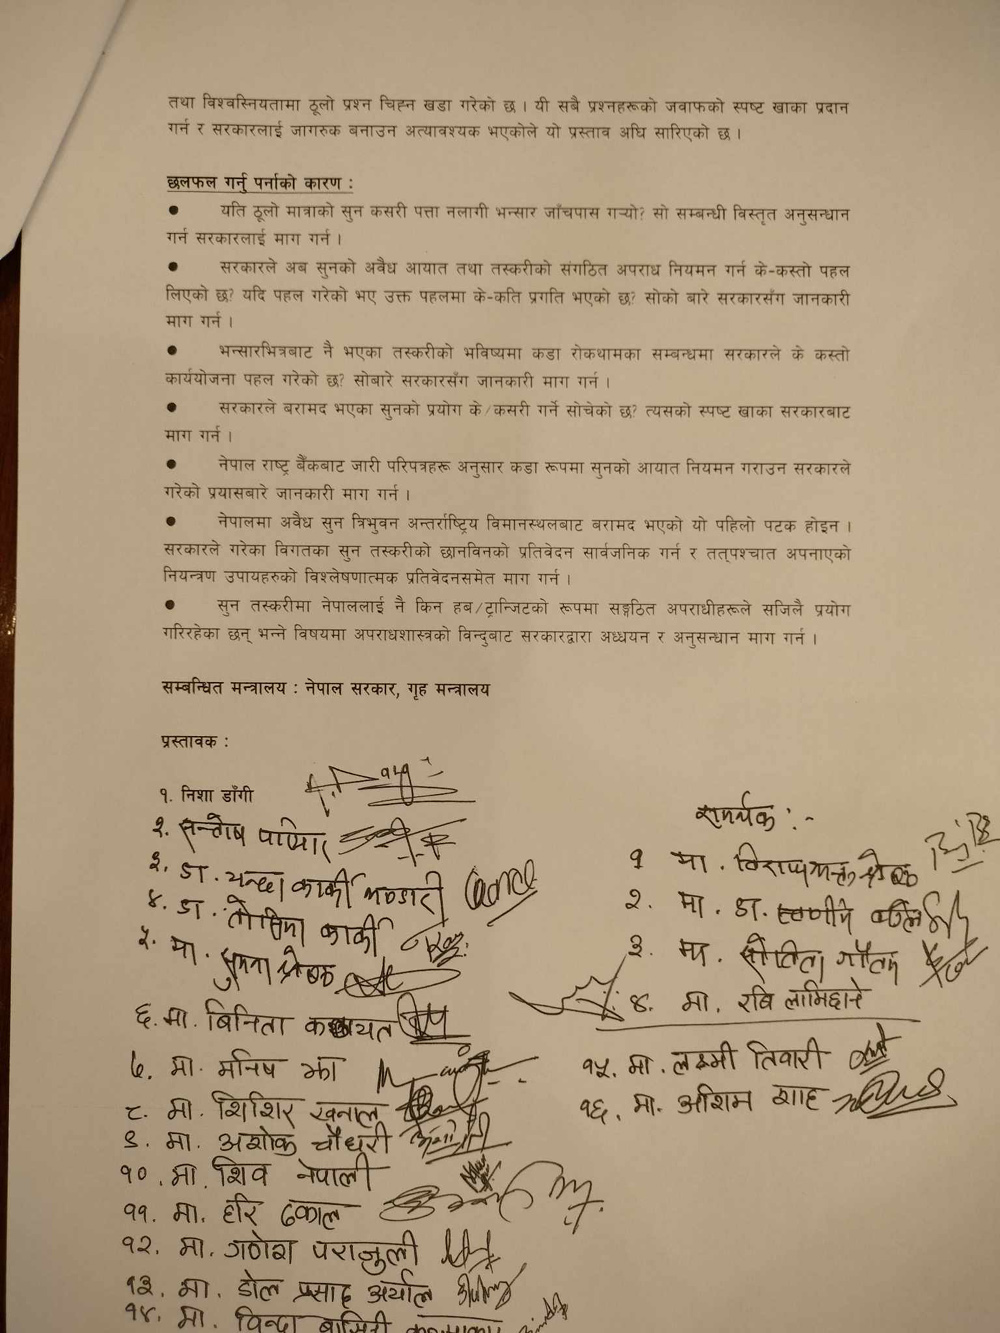 तथा विश्वस्नियतामा ठूलो प्रश्न चिह्न खडा गरेको छ । यी सबै प्रश्नहरूको जवाफको स्पष्ट खाका प्रदान
गर्न र सरकारलाई जागरुक बनाउन अत्यावश्यक भएकोले यो प्रस्ताव अघि सारिएको छ ।
छलफल गर्नु पर्नाको कारण :
● यति ठूलो मात्राको सुन कसरी पत्ता नलागी भन्सार जाँचपास गऱ्यो? सो सम्बन्धी विस्तृत अनुसन्धान
गर्न सरकारलाई माग गर्न ।
● सरकारले अब सुनको अवैध आयात तथा तस्करीको संगठित अपराध नियमन गर्न के-कस्तो पहल
लिएको छ? यदि पहल गरेको भए उक्त पहलमा के-कति प्रगति भएको छ? सोको बारे सरकारसँग जानकारी
माग गर्न ।
● भन्सारभित्रबाट नै भएका तस्करीको भविष्यमा कडा रोकथामका सम्बन्धमा सरकारले के कस्तो
कार्ययोजना पहल गरेको छ? सोबारे सरकारसँग जानकारी माग गर्न ।
● सरकारले बरामद भएका सुनको प्रयोग के/कसरी गर्ने सोचेको छ? त्यसको स्पष्ट खाका सरकारबाट
माग गर्न ।
● नेपाल राष्ट्र बैंकबाट जारी परिपत्रहरू अनुसार कडा रूपमा सुनको आयात नियमन गराउन सरकारले
गरेको प्रयासबारे जानकारी माग गर्न ।
● नेपालमा अवैध सुन त्रिभुवन अन्तर्राष्ट्रिय विमानस्थलबाट बरामद भएको यो पहिलो पटक होइन ।
सरकारले गरेका विगतका सुन तस्करीको छानविनको प्रतिवेदन सार्वजनिक गर्न र तत्पश्चात अपनाएको
नियन्त्रण उपायहरुको विश्लेषणात्मक प्रतिवेदनसमेत माग गर्न ।
● सुन तस्करीमा नेपाललाई नै किन हब/ट्रान्जिटको रूपमा सङ्गठित अपराधीहरूले सजिलै प्रयोग
गरिरहेका छन् भन्ने विषयमा अपराधशास्त्रको विन्दुबाट सरकारद्वारा अध्ययन र अनुसन्धान माग गर्न ।
सम्बन्धित मन्त्रालय : नेपाल सरकार, गृह मन्त्रालय
प्रस्तावक :
१. निशा डाँगी
२. सन्तोष परियार
३. डा. चन्दा कार्की भण्डारी
४. डा. तोसिमा कार्की
५. मा. सुमना श्रेष्ठ
६. मा. बिनिता कठायत
७. मा. मनिष झा
८. मा. शिशिर खनाल
९. मा. अशोक चौधरी
१०. मा. शिव नेपाली
११. मा. हरि ढकाल
१२. मा. गणेश पराजुली
१३. मा. डोल प्रसाद अर्याल
१४. मा. विन्दबासिनी
समर्थक :-
१ मा. विराजभक्त श्रेष्ठ
२. मा. डा. स्वर्णिम वाग्ले
३. मा. सोविता गौतम
४. मा. रवि लामिछाने
१५. मा. लक्ष्मी तिवारी
१६. मा. असिम शाह